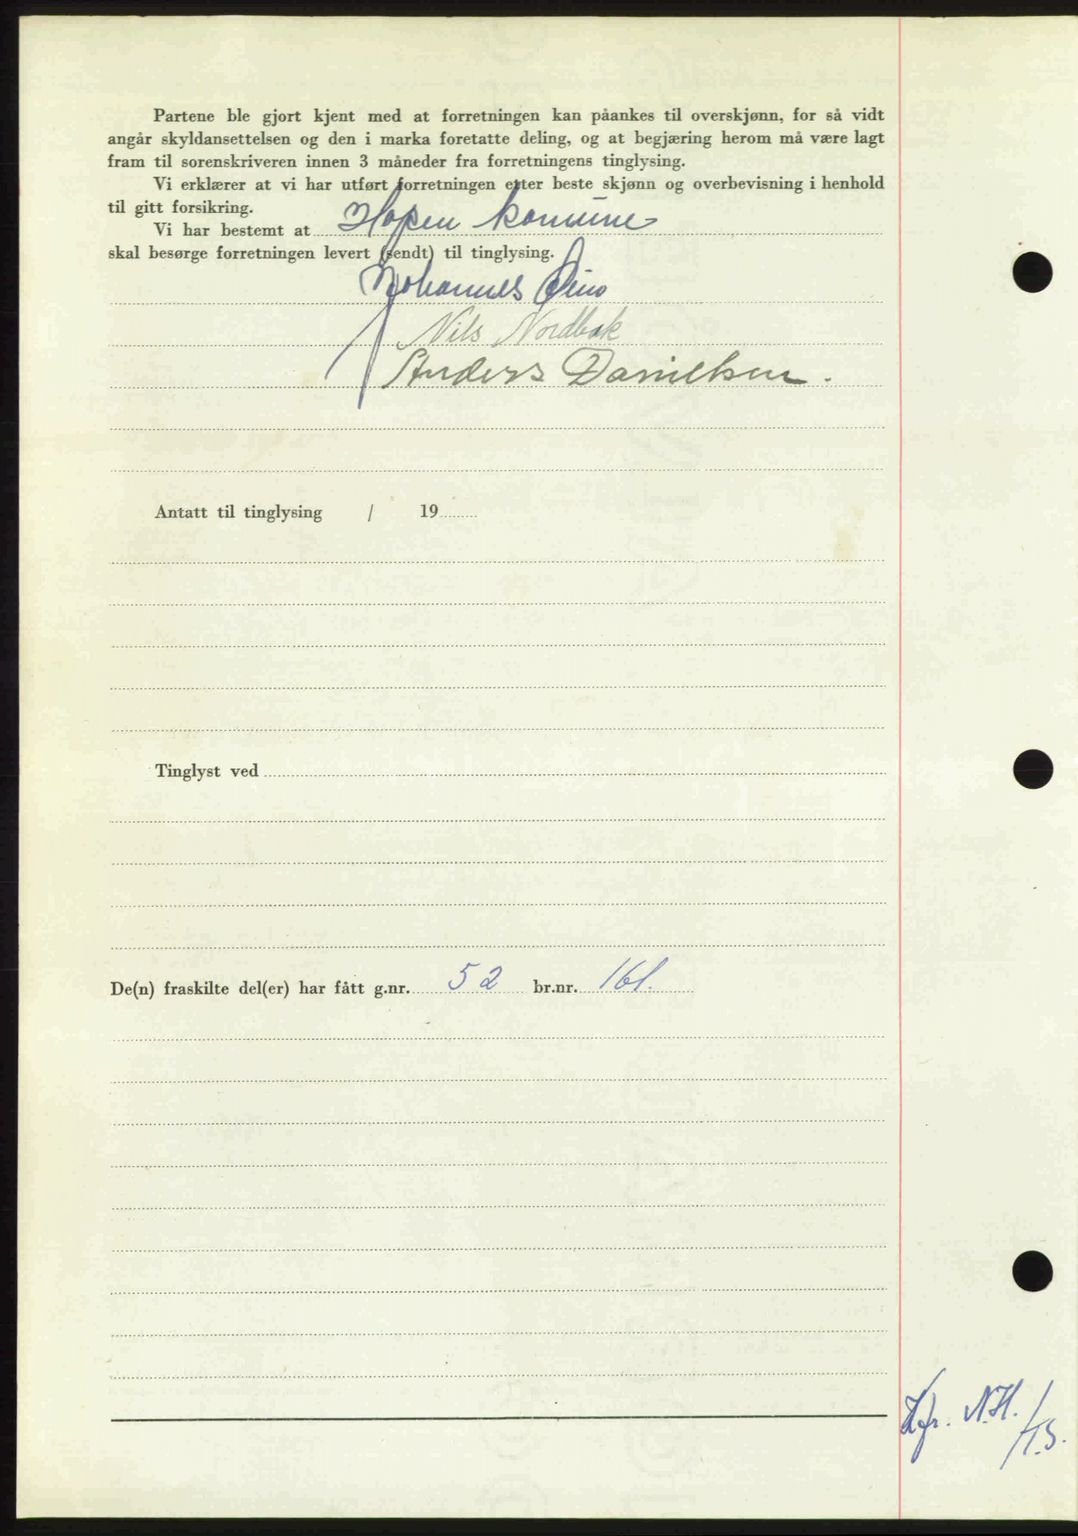 Partene ble gjort kjent med at forretningen kan påankes til overskjønn, for så vidt
angår skyldansettelsen og den i marka foretatte deling, og at begjæring herom må være lagt
fram til sorenskriveren innen 3 måneder fra forretningens tinglysing.
Vi erklærer at vi har utført forretningen etter beste skjønn og overbevisning i henhold
til gitt forsikring.
Vi har bestemt at Hopen komune
skal besørge forretningen levert (sendt) til tinglysing.
Johannes
Nils Nordbak
Anders Danielsen.
Antatt til tinglysing / 19
Tinglyst ved
De(n) fraskilte del(er) har fått g.nr. 52 br.nr. 161.
N.H.